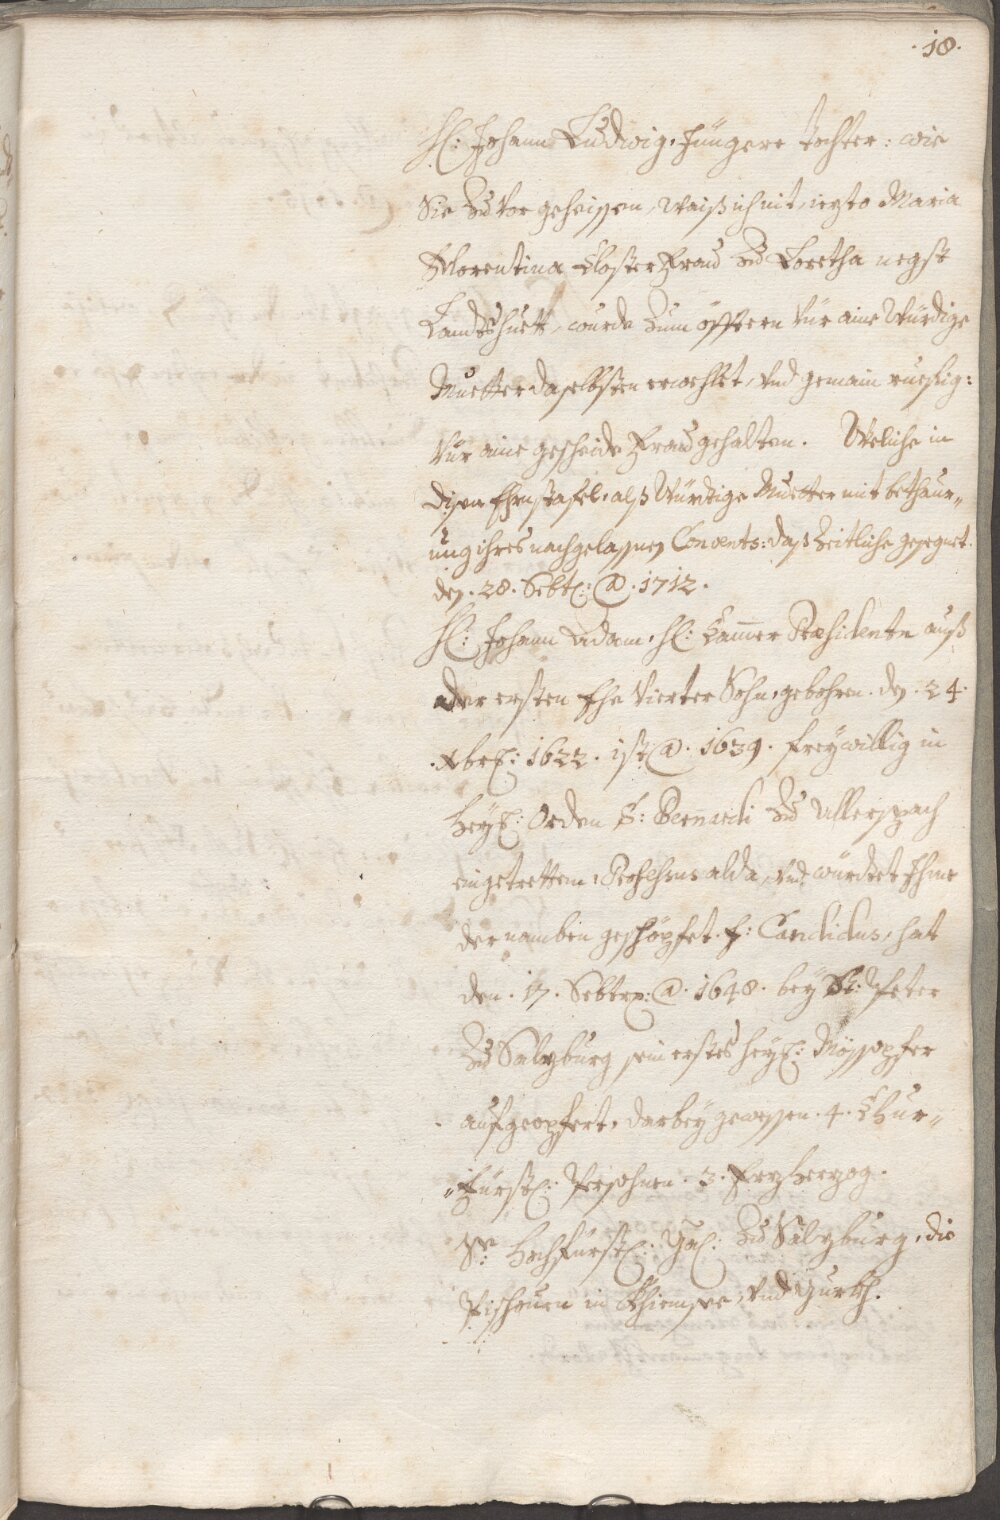 .18.
H: Johann Ludwig, Jüngere tochter: wie
Sie zuvor geheissen, waiß ich nit, iezto Maria
Florentina Closter Frau zu Loretha negst
Landtshuett, wurde zum öfftern vür aine Würdige
Muetter daselbsten erwehlet, vnd gemain
vür aine gescheide Frau gehalten. Weliche in
diser Ehrnstafel, alß Würdige Muetter mit bethaur„
ung ihres nachgelassnen Convents: daß Zeitliche gesegnet.
den. 28. Sebt: @. 1712.
H: Johann Adam, H: Camer Præsidente auß
der ersten Ehe Vierter Sohn, gebohren. den. 24.
.Xbr: 1622. ist @. 1639. freywillig in
heyl: Orden S: Bernardi zu Allerspach
eingetretten, alda, vnd wurdtet Ihme
der namben geschöpfet. F: Candidus, hat
den. 17. Sebtr: @. 1648. bey St: Peter
zu Salzburg sein erstes heyl: Mößopfer
aufgeopfert, darbey gewessen. 4. Chur„
„Fürstl: Persohnen. 3. Erzherzog.
Sr: Hochfürstl: Gd: zu Salzburg, die
Pischouen in Chiemsee, vnd Gurkh.